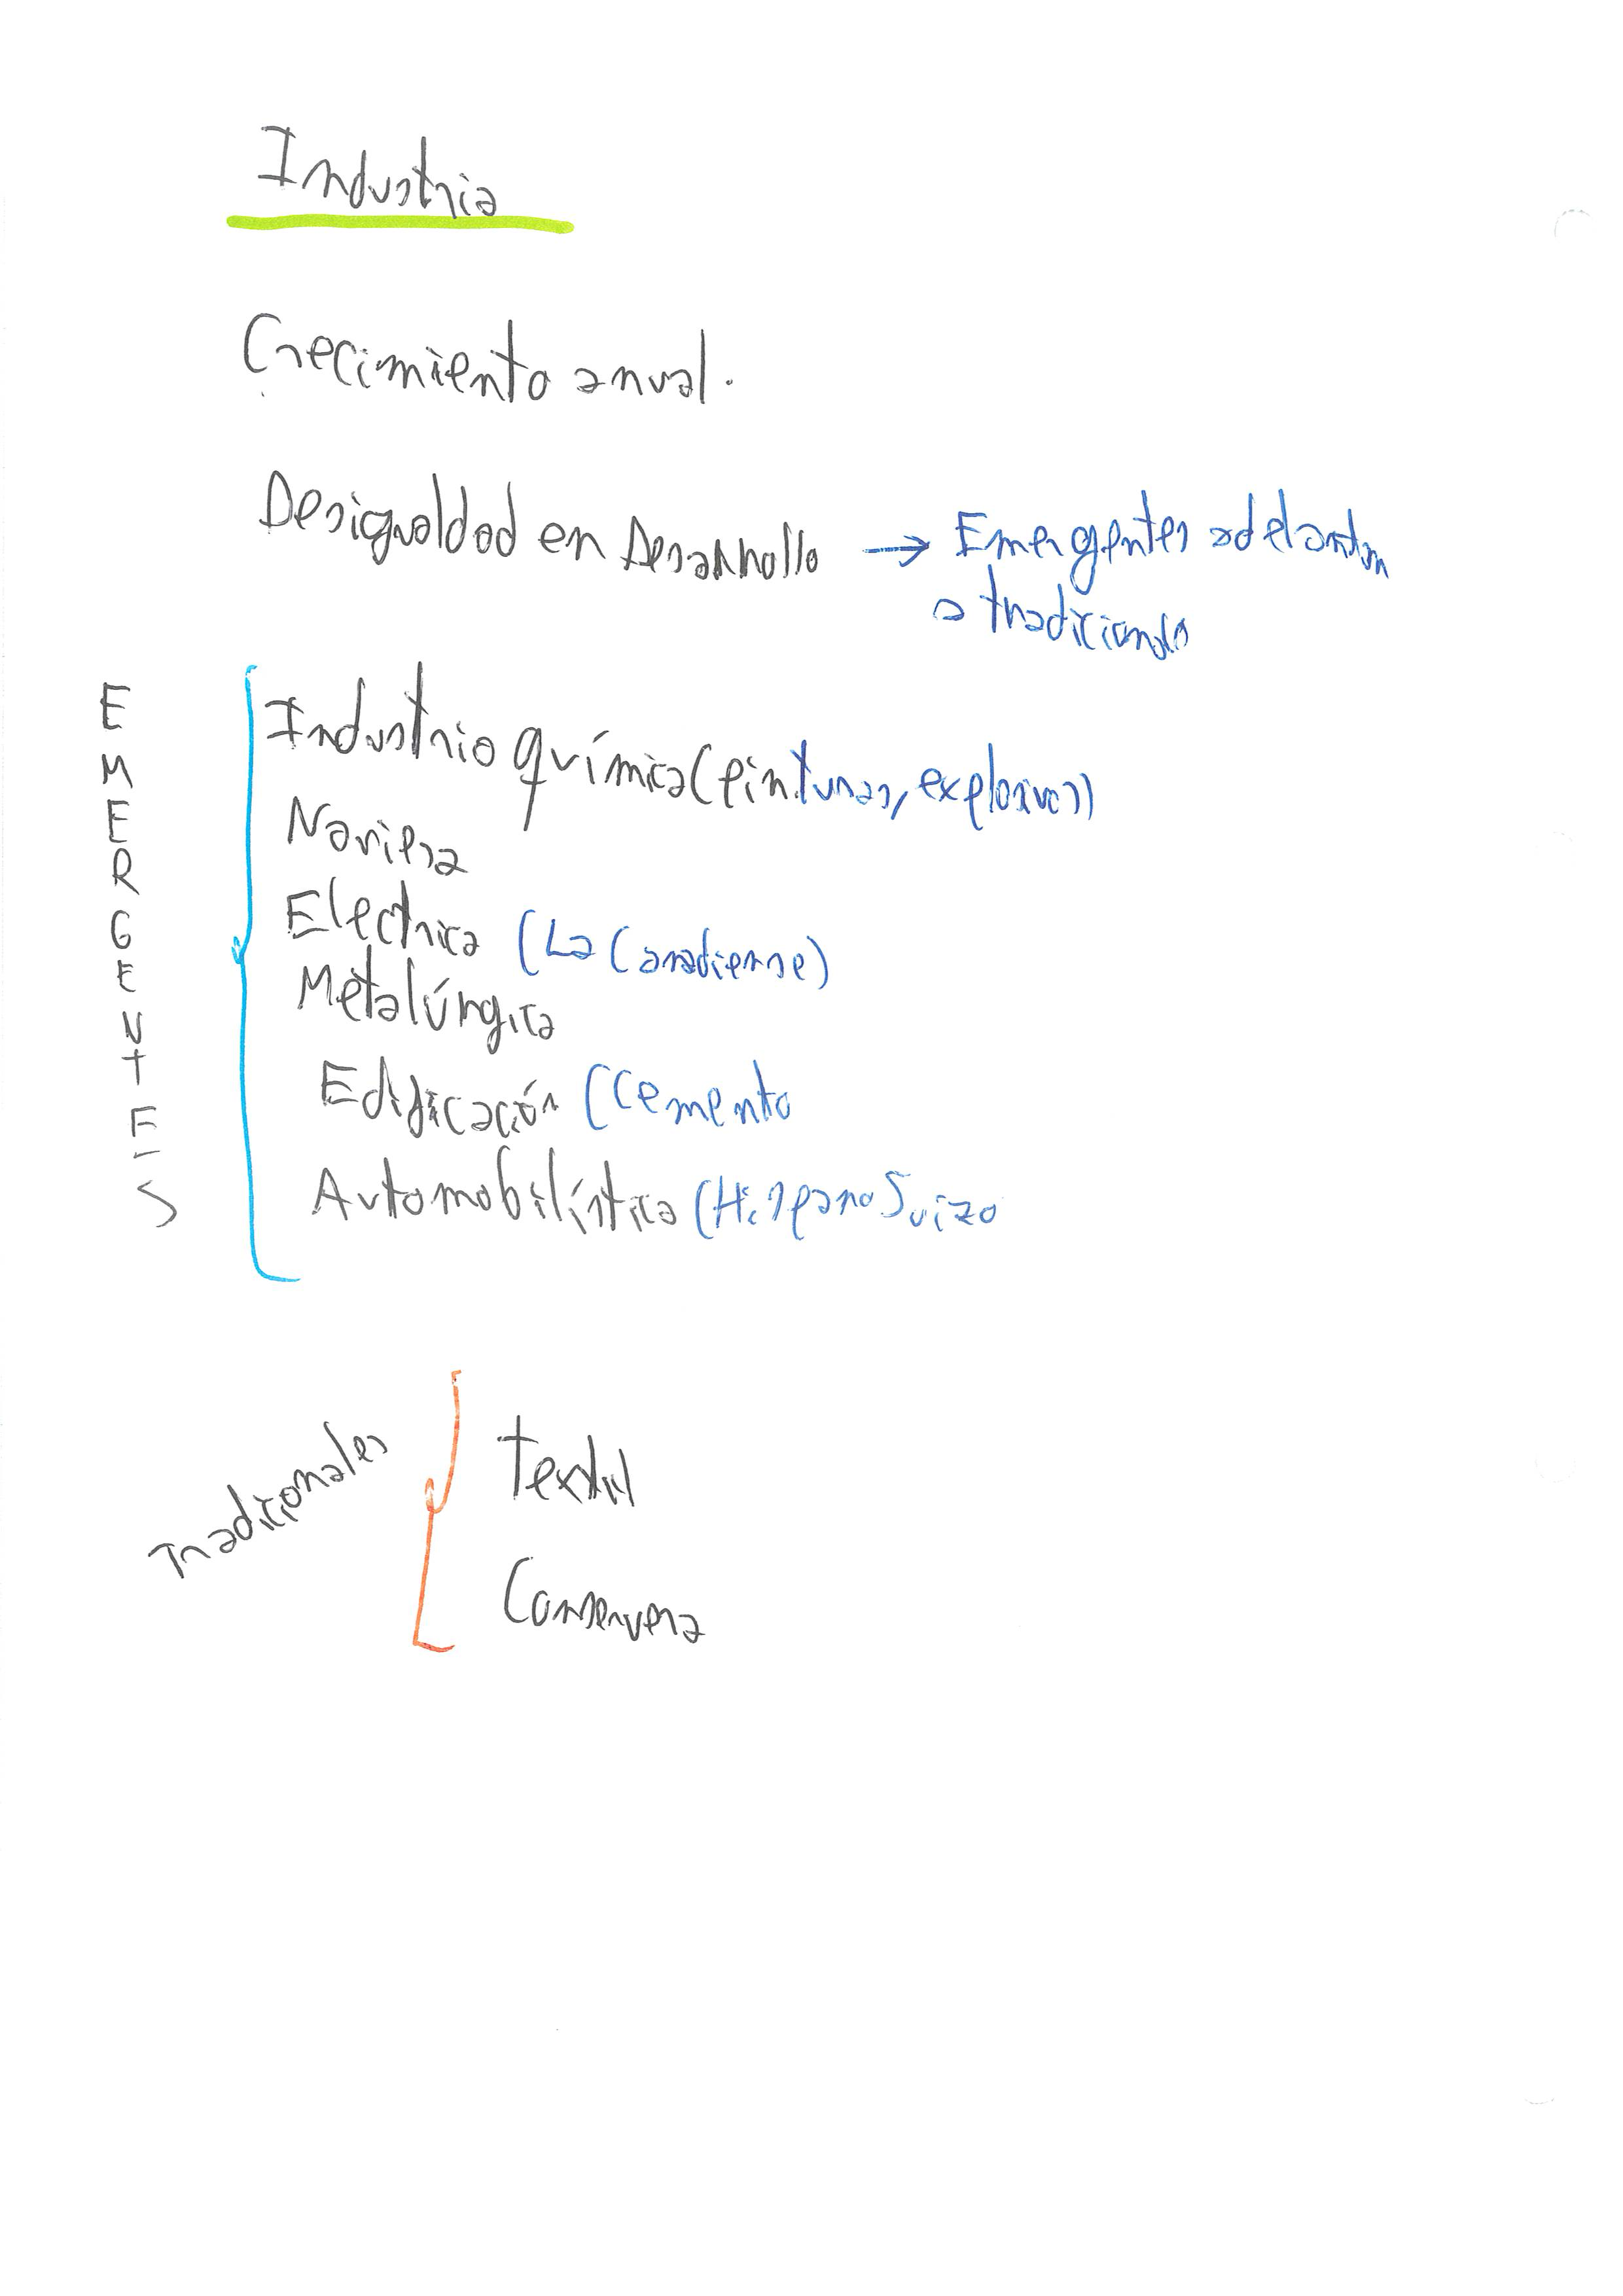 Industria
Crecimiento anual.
Desigualdad en Desarrollo → Emergentes adelantan
a tradicionales
EMERGENTES
Industria química (pinturas, explosivos)
Naviera
Electrica (La Canadiense)
Metalúrgica
Edificación (Cemento
Automobilística (Hispano Suiza
Tradicionales
Textil
Conservera